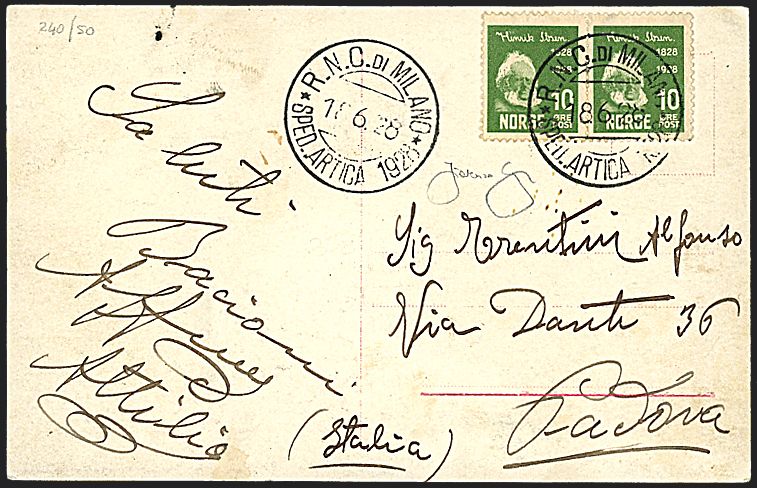 240/50
R.N.C. DI MILANO
18.6.28
* SPED. ARTICA 1928 *
Henrik Ibsen.
1828
1928
10
ØRE
NORGE POST
Henrik Ibsen.
1828
1928
10
ØRE
NORGE POST
R.N.C. DI MILANO
18.6.28
* SPED. ARTICA 1928 *
Saluti
Bacioni
Attilio
Sig Trentini Alfonso
Via Dante 36
Padova
(Italia)